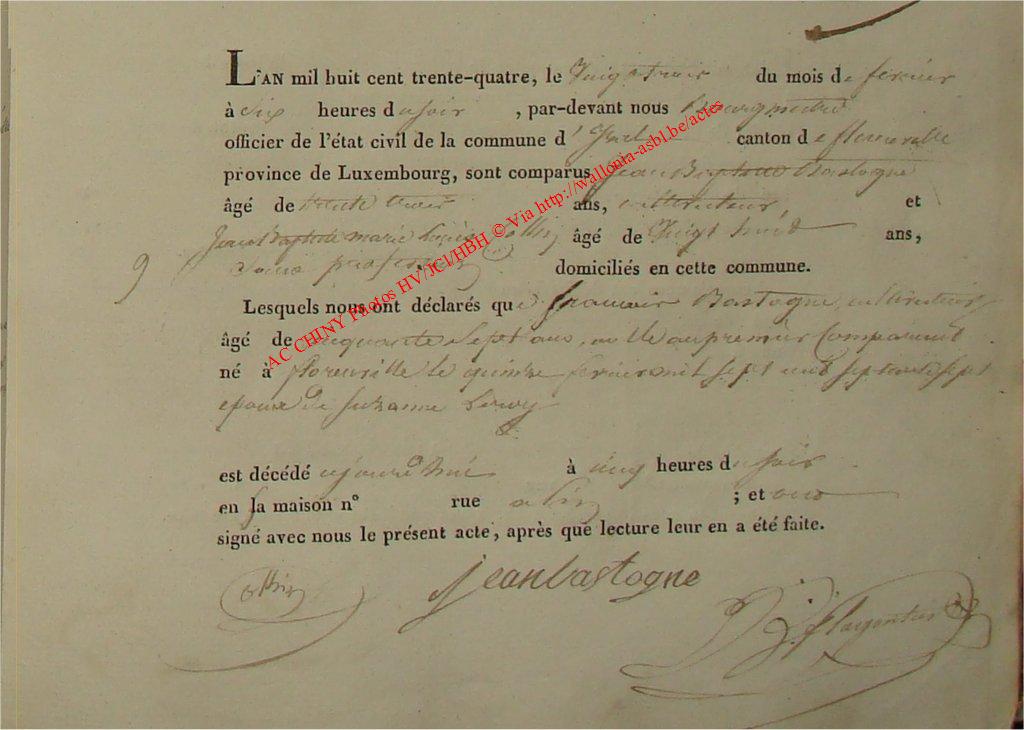 L'AN mil huit cent trente-quatre, le Vingt trois du mois de fevrier
à Six heures du soir , par-devant nous Bourgmestre
officier de l'état civil de la commune d' canton de florenville
province de Luxembourg, sont comparus Jean Baptiste Bastogne
âgé de trente trois ans, cultivateur, et
Jean Baptiste marie âgé de Vingt huit ans,
9 domiciliés en cette commune.
Lesquels nous ont déclarés que francois Bastogne cultivateur
âgé de cinquante Sept ans, au premier Comparant
né à florenville le quinze fevrier mil sept cent septante sept
epoux de Suzanne
est décédé aujourd'hui à cinq heures du soir
en sa maison n° rue ; et ont
signé avec nous le présent acte, après que lecture leur en a été faite.
jean bastogne
AC CHINY Photos HV/JCl/HBH © Via http://wallonia-asbl.be/actes